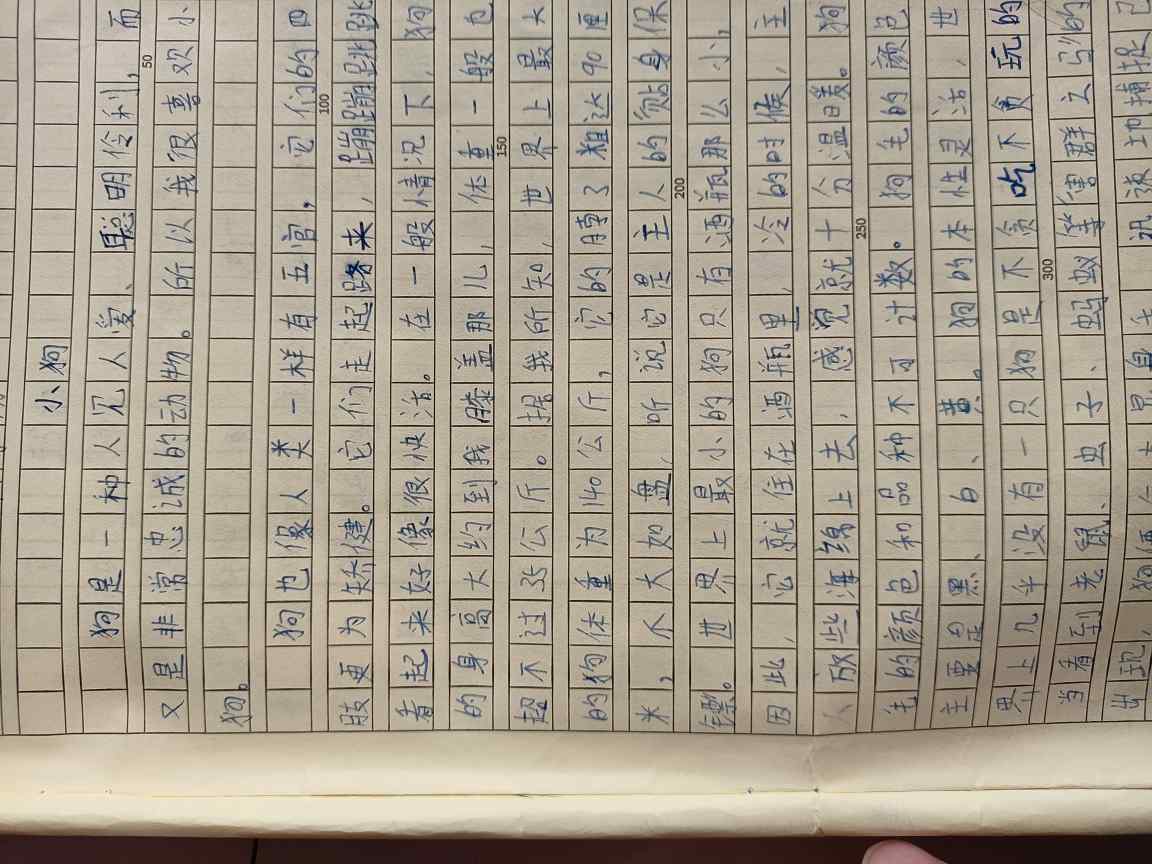 小狗
狗是一种人见人爱、聪明伶利,而
又是非常忠诚的动物。所以我很喜欢小
狗。
狗也像人类一样有五官,它们的四
肢更为矫健。它们走起路来,蹦蹦跳跳
看起来好像很快活。在一般情况下,狗
的身高大约到我膝盖那儿,体重一般也
超不过35公斤。据我所知,世界上最大
的狗体重为140公斤,它的脖子粗达90厘
米,个大如盘,听说它是主人的贴身保
镖。世界上最小的狗只有酒瓶那么小,
因此,它就住在酒瓶里,冷的时候,主
人放些薄绵上去,感觉就十分温暖。狗
毛的颜色和品种不可计数。狗毛的颜色
主要是黑、白、黄。狗的本性灵活,世
界上几乎没有一只狗是不贪吃不贪玩的
当看到老鼠、虫子、蚂蚁等害群之
出现,狗便